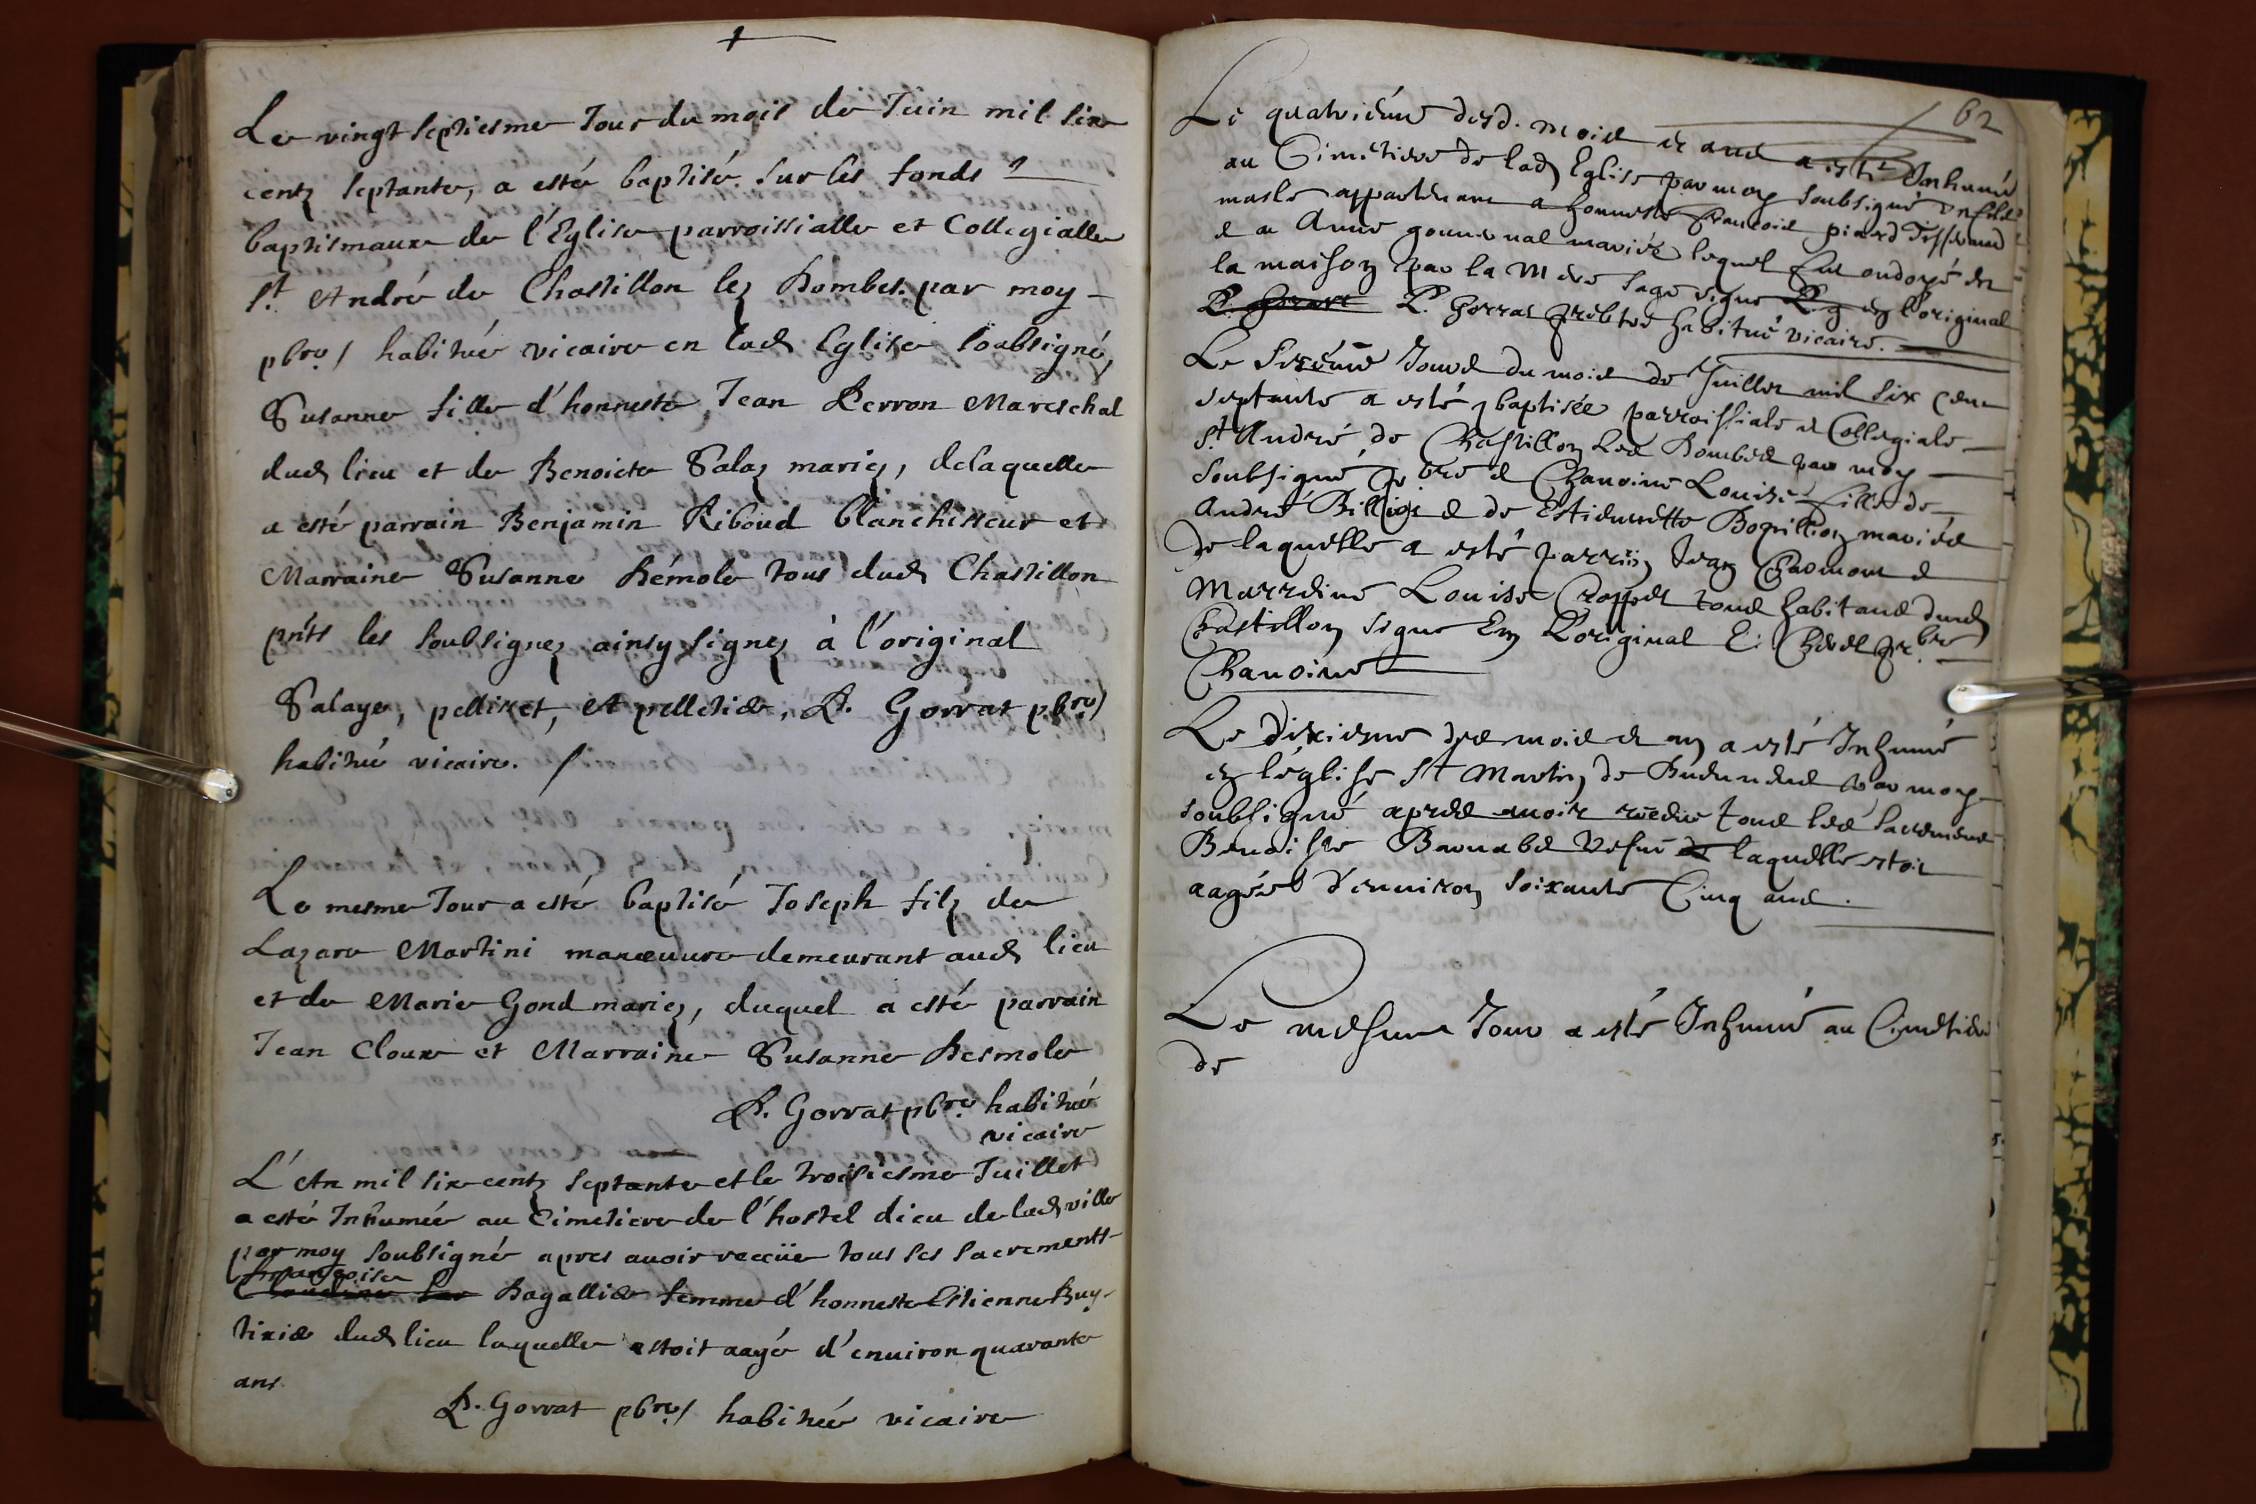 Le vingt septiesme Jour du mois de Juin mil six
centz septante, a esté baptisé sur les fonds
baptismaux de l'Eglise parroissialle et Collegialle
St André de Chastillon lez Dombes par moy
pbre habitué vicaire en lad Eglise soubsigné,
Susanne fille d'honneste Jean Perron Mareschal
dud lieu et de Benoicte Salaz mariez, de laquelle
a esté parrain Benjamin Riboud blanchisseur et
Marraine Susanne Démole tous dud Chastillon
pnts les soubsignez ainsy signez à l'original
Salaye, pellisset, et pelletier, P. Gorrat pbre
habitué vicaire.
Le mesme Jour a esté baptisé Joseph filz de
Lazare Martini manœuvre demeurant aud lieu
et de Marie Gond mariez, duquel a esté parrain
Jean Cloux et Marraine Susanne Desmole
P. Gorrat pbre habitué
vicaire
L'An mil six centz septante et le troisiesme Juillet
a esté Inhumée au Cimetiere de l'hostel dieu de lad ville
par moy soubsigné apres auoir receüe tous ses sacrements
Françoise
Claudine Bagallier femme d'honneste Estienne Buy-
tixier dud lieu laquelle estoit aagée d'enuiron quarante
ans
P. Gorrat pbre habitué vicaire
62
Le quatrième desd. mois et ans a esté Inhumé
au Cimetiere de lad Eglise par moy soubsigné un filz
masle appartenant a honneste Francois piard Tisserand
et a Anne gonneval mariés lequel fut ondoyé en
la maison par la Mere sage signe en l'original
P. Gorrat P. Gorrat prebtre habitué vicaire.
Le sixéme Jour du mois de Juillet mil six cent
septante a esté baptisée parroissiale et Collegiale
St André de Chastillon Les Dombes par moy
soubsigné pbre et Chanoine Louise fille de
André Billion et de Estiennette Boquillion mariés
de laquelle a esté parrin Jean Chamont et
Marreine Louise Croppet tous habitans dud
Chastillon signe En L'original E: Chevel prbre
Chanoine
Le dixiesme des mois et an a esté Inhumé
en léglise St Martin de Buenens par moy
soubsigné apres auoir receue tous les sacremens
Benoiste Barnabé Vefue de laquelle estoit
aagéé d'enuiron soixante Cinq ans.
Le mesme Jour a esté Inhumé au Cimetiere
de